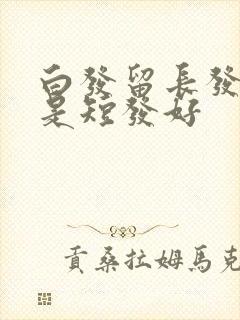 白發留長發
是短發好
貢桑拉姆馬克